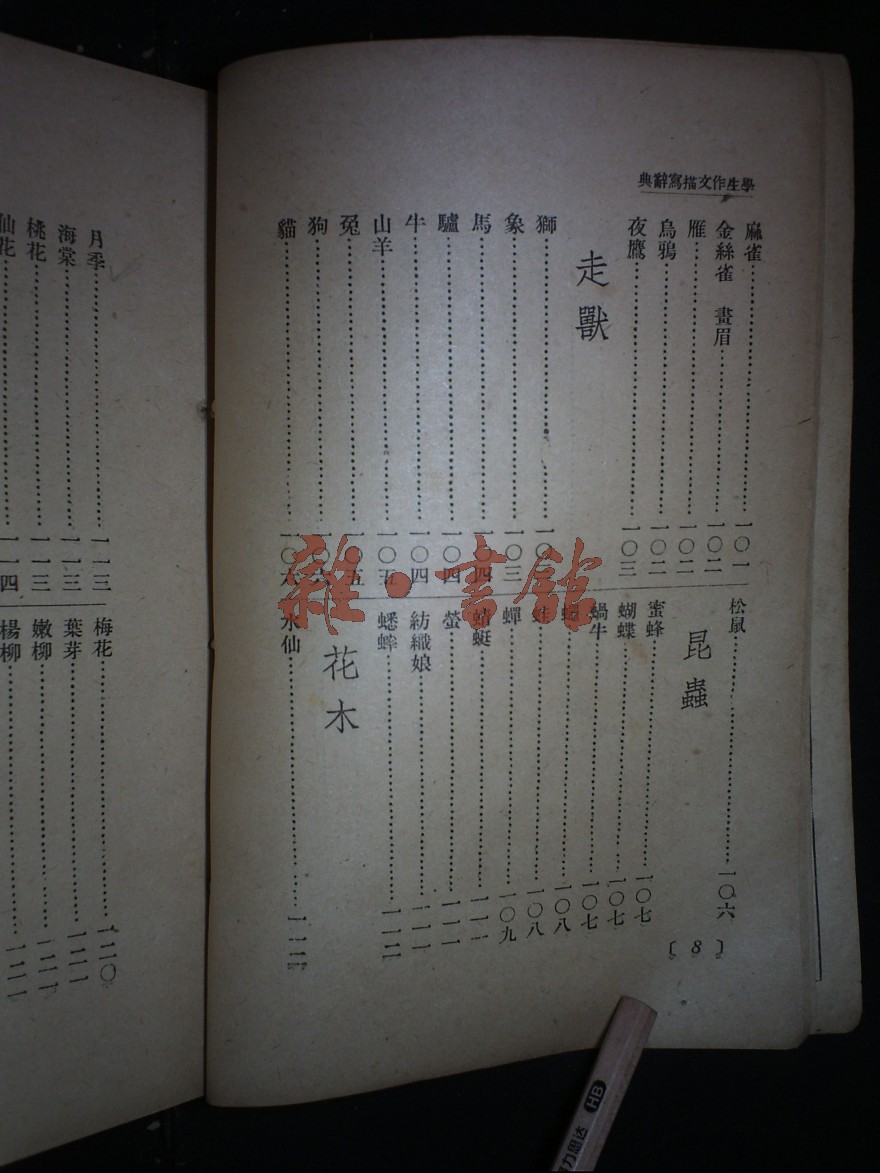 學生作文描寫辭典
麻雀⋯⋯一〇一
金絲雀 畫眉⋯⋯一〇二
雁⋯⋯一〇二
烏鴉⋯⋯一〇二
夜鷹⋯⋯一〇三
走獸
獅⋯⋯一〇
象⋯⋯一〇三
馬⋯⋯一〇四
驢⋯⋯一〇四
牛⋯⋯一〇四
山羊⋯⋯一〇五
兔⋯⋯一〇五
狗⋯⋯一〇六
貓⋯⋯一〇六
松鼠⋯⋯一〇六
昆蟲
蜜蜂⋯⋯一〇七
蝴蝶⋯⋯一〇七
蝸牛⋯⋯一〇七
⋯⋯一〇八
⋯⋯一〇八
蟬⋯⋯一〇九
蜻蜓⋯⋯一一一
螢⋯⋯一一一
紡織娘⋯⋯一一一
蟋蟀⋯⋯一一二
花木
水仙⋯⋯一一二
〔8〕
月季⋯⋯一一三
海棠⋯⋯一一三
桃花⋯⋯一一三
仙花⋯⋯一一四
梅花⋯⋯一二〇
葉芽⋯⋯一二一
嫩柳⋯⋯一二一
楊柳⋯⋯一二一
雜·書館
力思达 HB